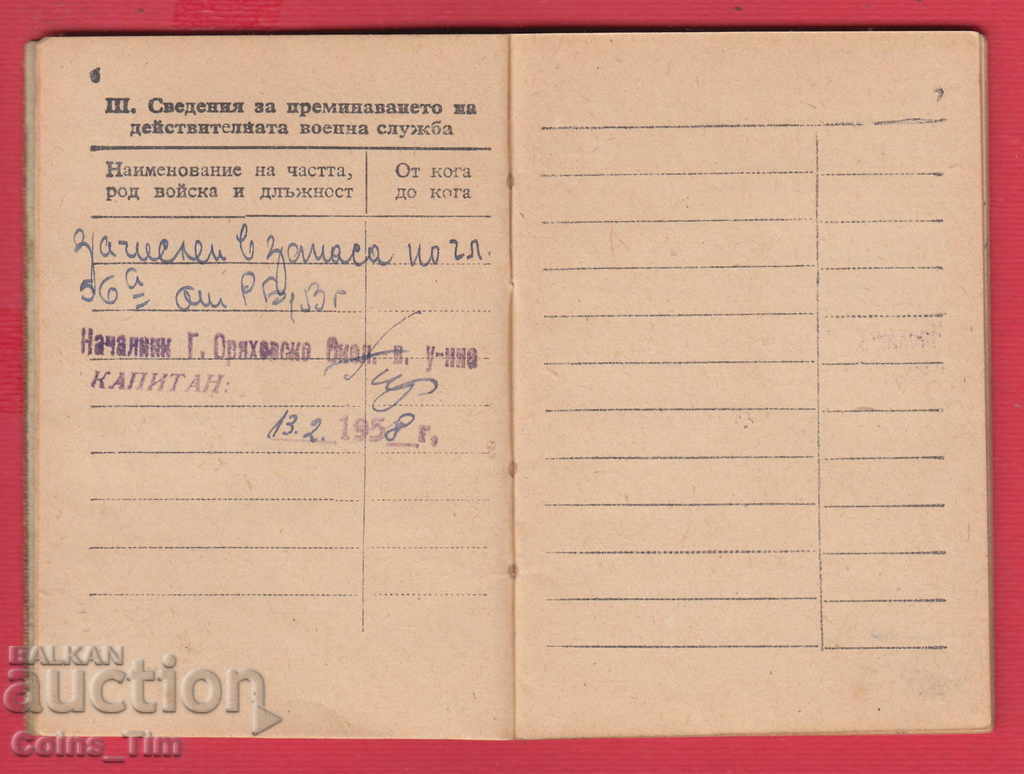 6
III. Сведения за преминаването на
действителната военна служба
Наименование на частта,
род войска и длъжност
От кога
до кога
зачислен в запаса по чл.
56а от
Началник Г. Оряховско в. у-ние
КАПИТАН:
13.2. 1958 г.
7
BALKAN
auction
Coins_Tim